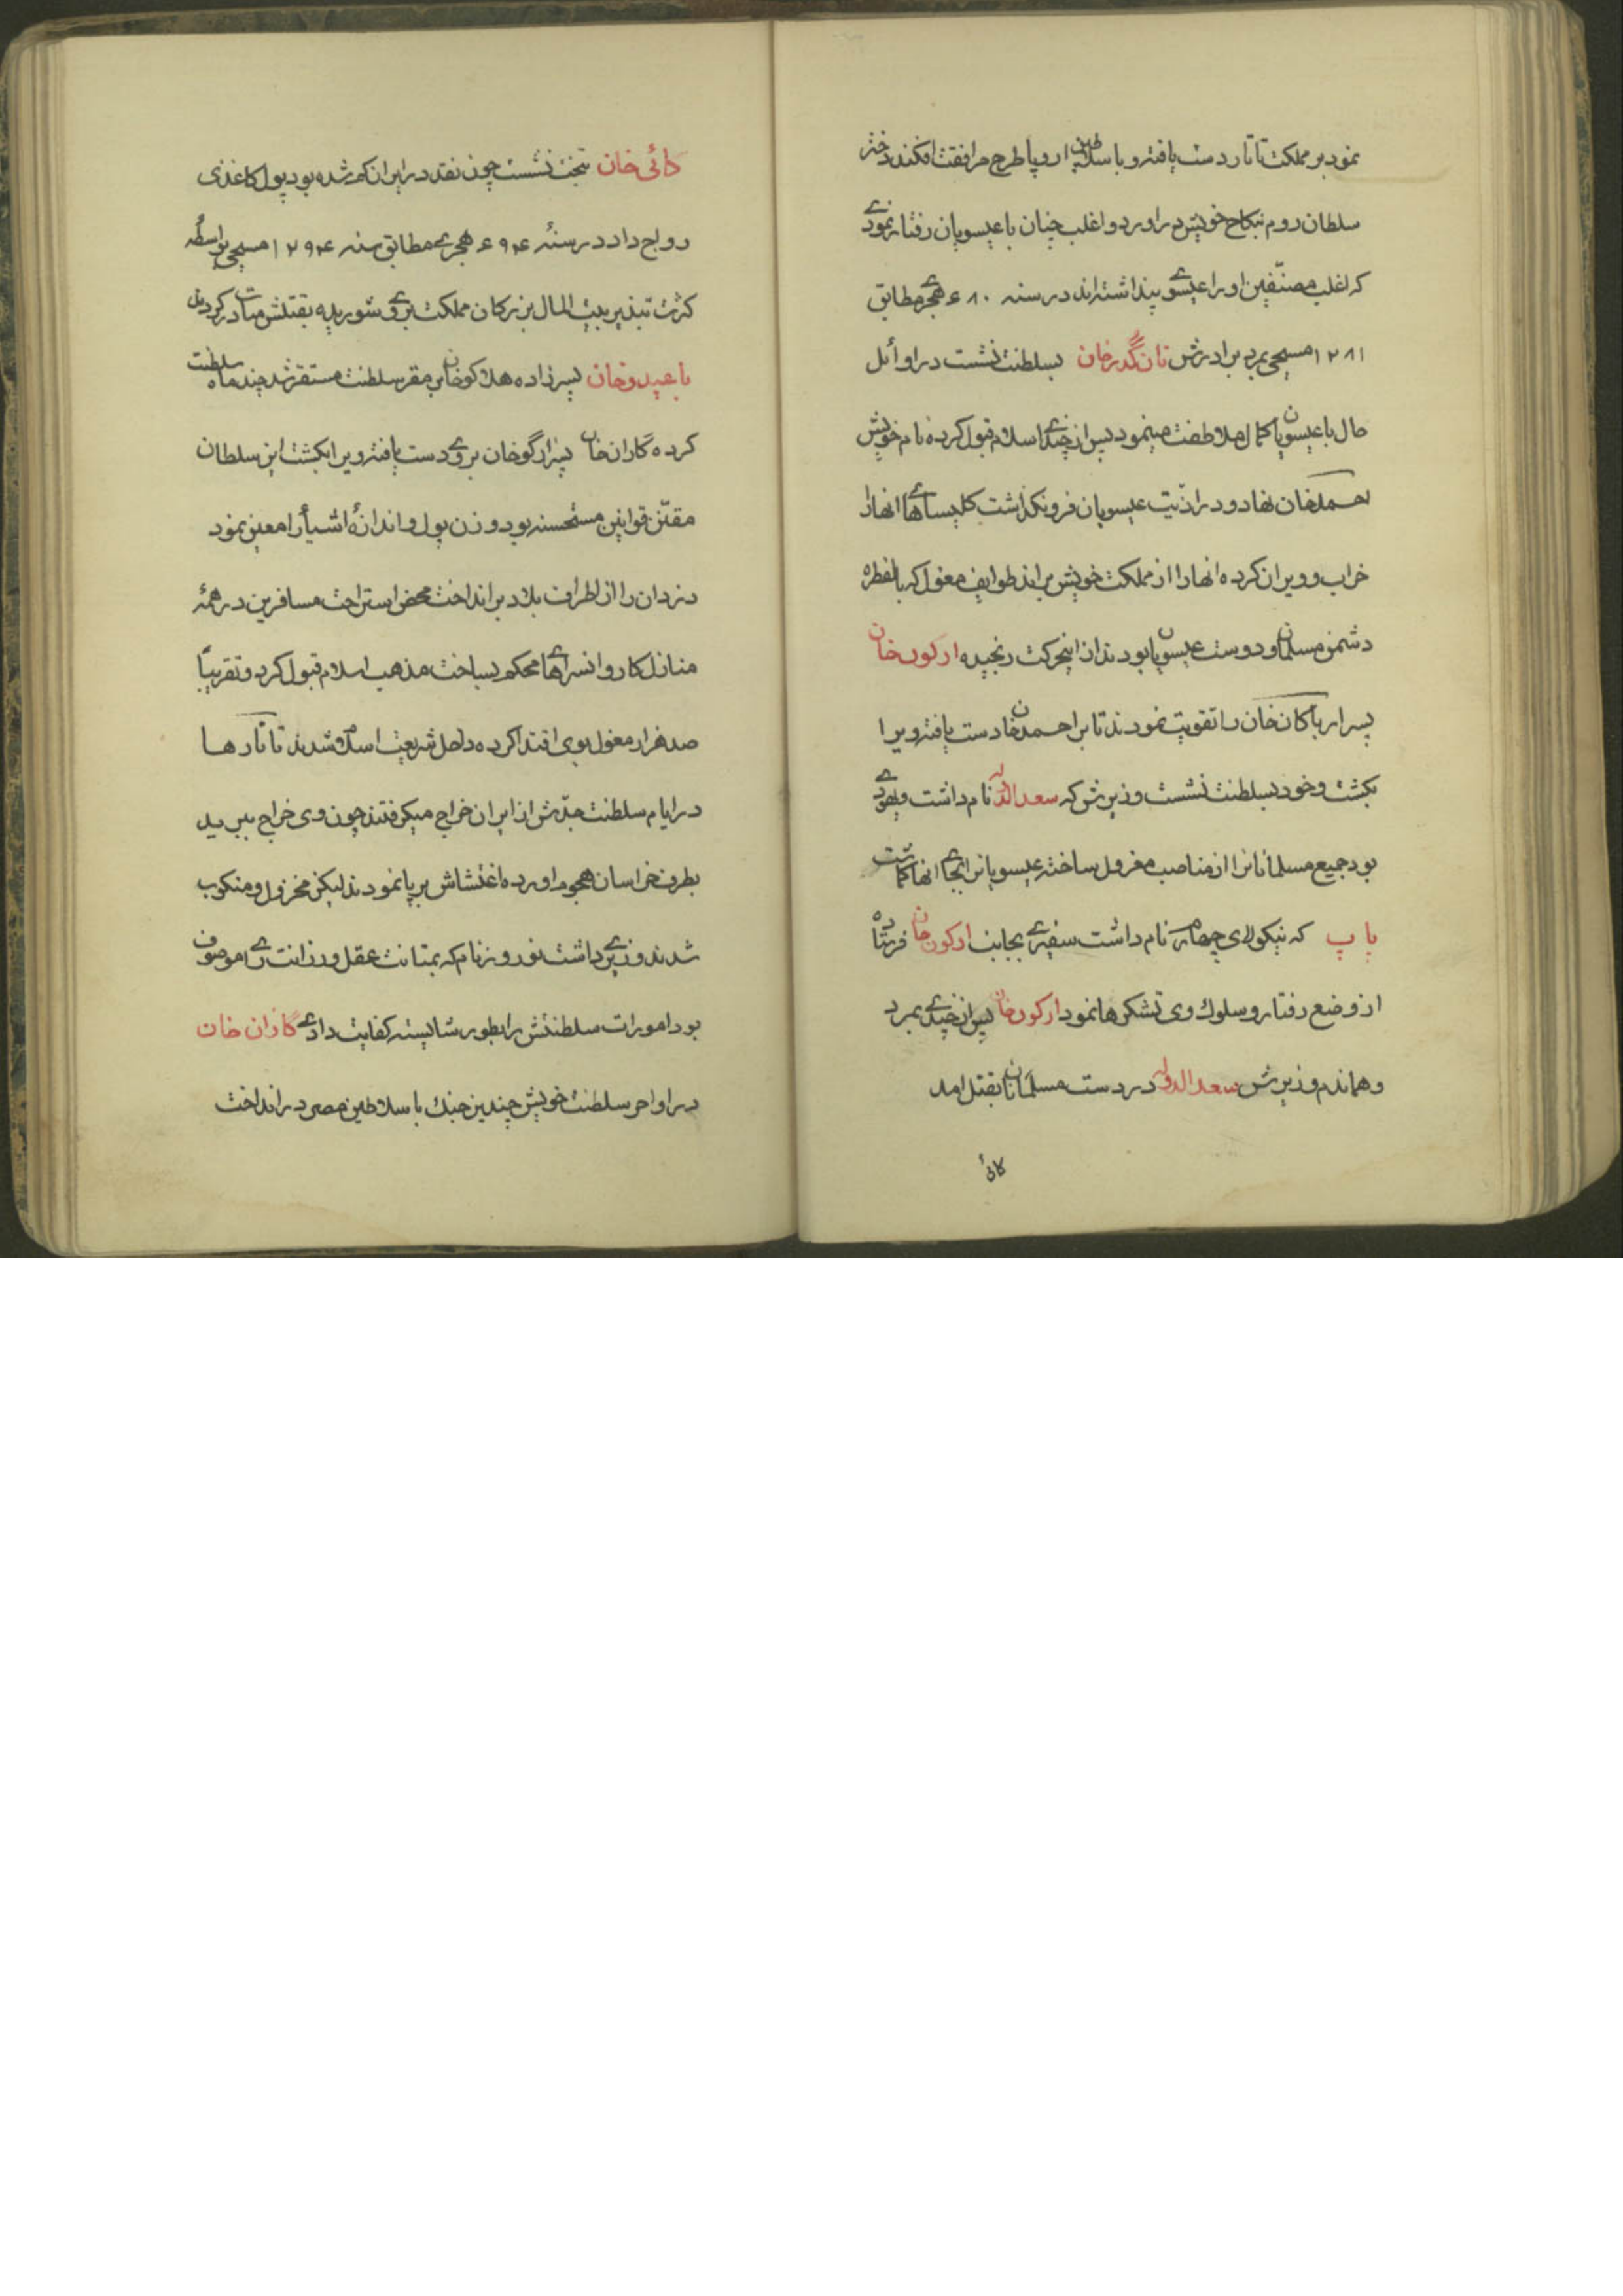 نمود بر مملکت تاتار دست یافته و با سلاطین اروپا طرح مرافقت افکند دختر
سلطان روم بنکاح خویش در اورد و اغلب چنان با عیسویان رفتار نمودے
که اغلب مصنّفین او را عیسوے پنداشته‌اند در سنه ۶۸۰ هجرے مطابق
۱۲۸۱ مسیحی بمرد برادرش تانگدر خان بسلطنت نشست در اوائل
حال با عیسویان کمال ملاطفت مینمود پس از چندے اسلام قبول کرده نام خویش
احمد خان نهاد و در اذیّت عیسویان فرونگذاشت کلیساهاے انها را
خراب و ویران کرده انها را از مملکت خویش براند طوایف مغول که بالفطره
دشمن مسلمانان و دوست عیسویان بودند از اینحرکت رنجیده ارکون خان
پسر ارباکان خان را تقویت نمودند تا بر احمد خان دست یافته ویرا
بکشت و خود بسلطنت نشست وزیرش که سعد الدوله نام داشت و یهودے
بود جمیع مسلمانانرا از مناصب معزول ساخته عیسویانرا بجاے انها کماشت
پاپ که نیکولای چهارم نام داشت سفیرے بجانب ارکون خان فرستاده
از وضع رفتار و سلوك وی تشکرها نمود ارکون خان پس از چندے بمرد
و هماندم وزیرش سعد الدوله در دست مسلمانان بقتل امد
کائی
کائی خان بتخت نشست چون نقد در ایران کم شده بود پول کاغذی
رواج داد در سنهٔ ۶۹۴ هجرے مطابق سنه ۱۲۹۴ مسیحی بواسطهٔ
کثرت تبذیر بیت المال بزرکان مملکت بر وے شوریده بقتلش مبادرت کردند
بایدو خان پسر زاده هلاکو خان بر مقر سلطنت مستقر شد چند ماه سلطنت
کرده گازان خان پسر ارگو خان بر وے دست یافته ویرا بکشت این سلطان
مقنّن قوانین مستحسنه بود وزن پول و اندازهٔ اشیأ را معین نمود
دزدان را از اطراف بلاد بر انداخت محض استراحت مسافرین در همهٔ
منازل کاروانسراهاے محکم بساخت مذهب اسلام قبول کرد و تقریباً
صد هزار مغول بوی اقتدا کرده داخل شریعت اسلام شدند تاتارها
در ایام سلطنت جدّش از ایران خراج میکرفتند چون وی خراج ببرید
بطرف خراسان هجوم اورده اغتشاش بر پا نمودند لیکن مخزول و منکوب
شدند وزیرے داشت نوروز نام که بمتانت عقل و رزانت راے موصوف
بود امورات سلطنتش را بطور شایسته کفایت دادے گازان خان
در اواخر سلطنت خویش چندین جنك با سلاطین مصر در انداخت